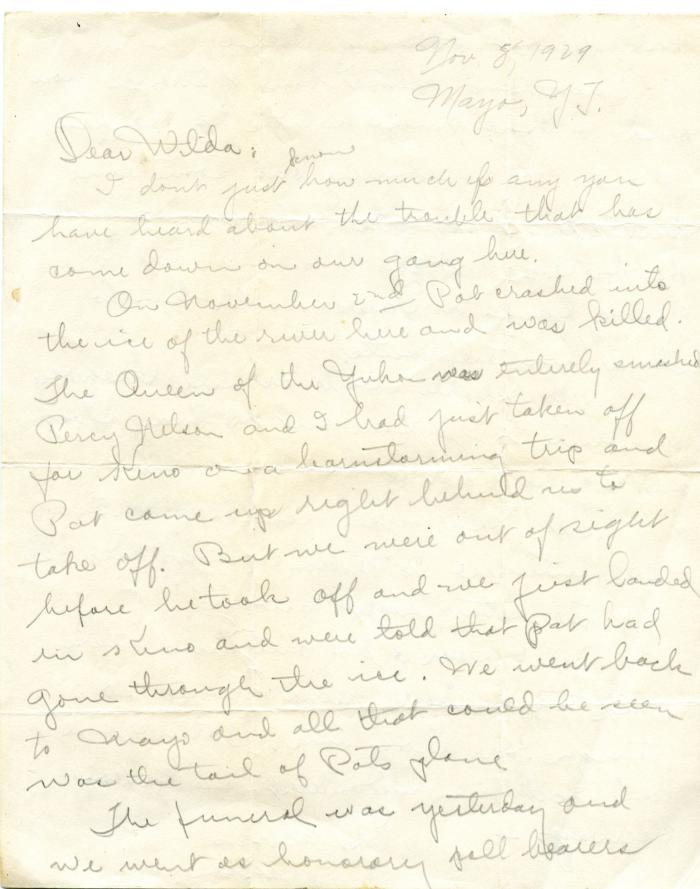 Nov. 8, 1929
Mayo, Y.T.
Dear Wilda:
know
I don't just how much if any you
have heard about the trouble that has
come down on our gang here.
On November 2nd Pat crashed into
the ice of the river here and was killed.
The Queen of the Yukon was entirely smashed
Percy Nelson and I had just taken off
for Keno on a barnstorming trip and
Pat come up right behind us to
take off. But we were out of sight
before he took off and we just landed
in Keno and were told that Pat had
gone through the ice. We went back
to Mayo and all that could be seen
was the tail of Pats plane
The funeral was yesterday and
we went as honorary pall bearers